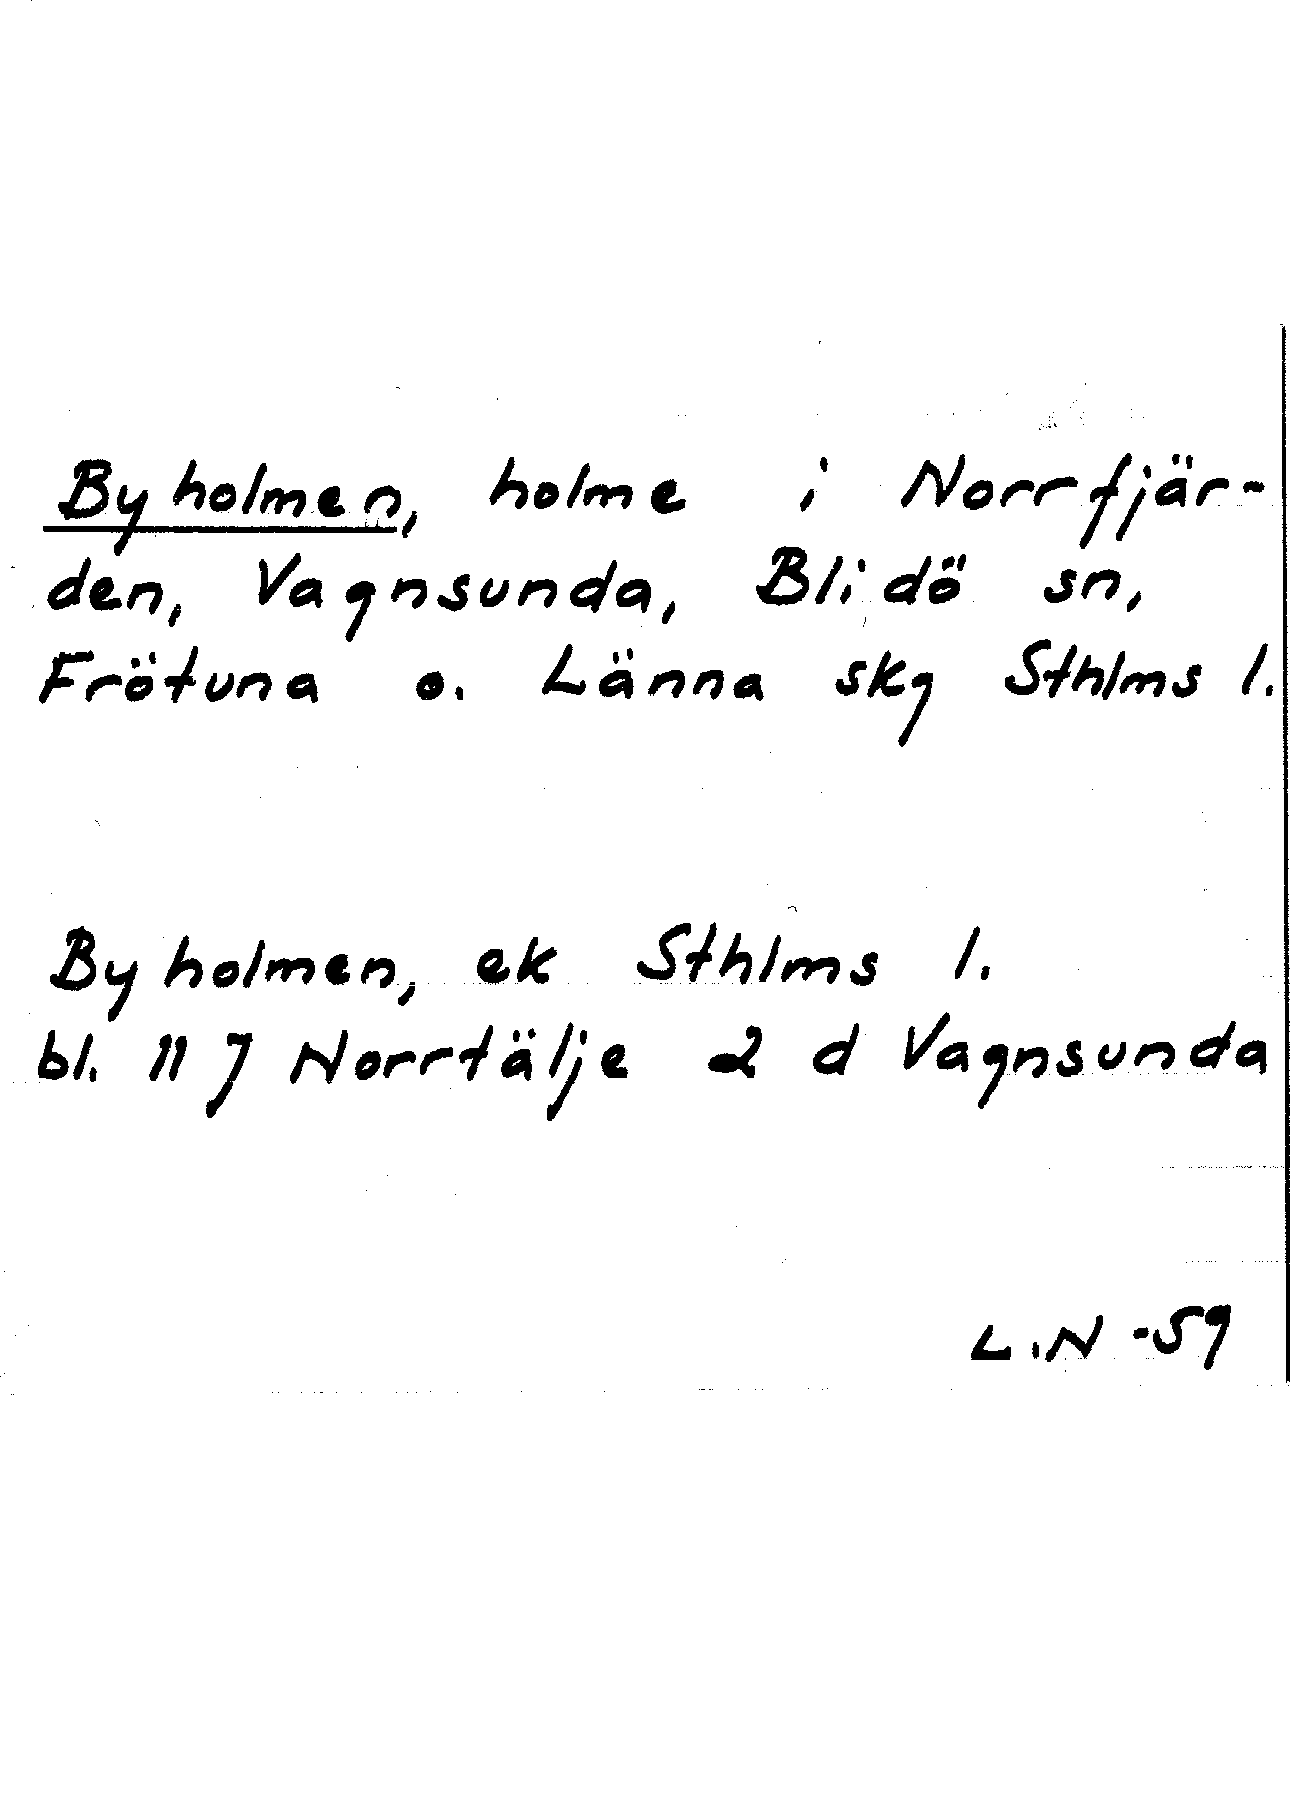 Byholmen, holme i Norrfjär-
den, Vagnsunda, Blidö sn,
Frötuna o. Länna skg Sthlms l.
Byholmen, ek Sthlms l.
bl. 11 J Norrtälje 2 d Vagnsunda
L.N -59